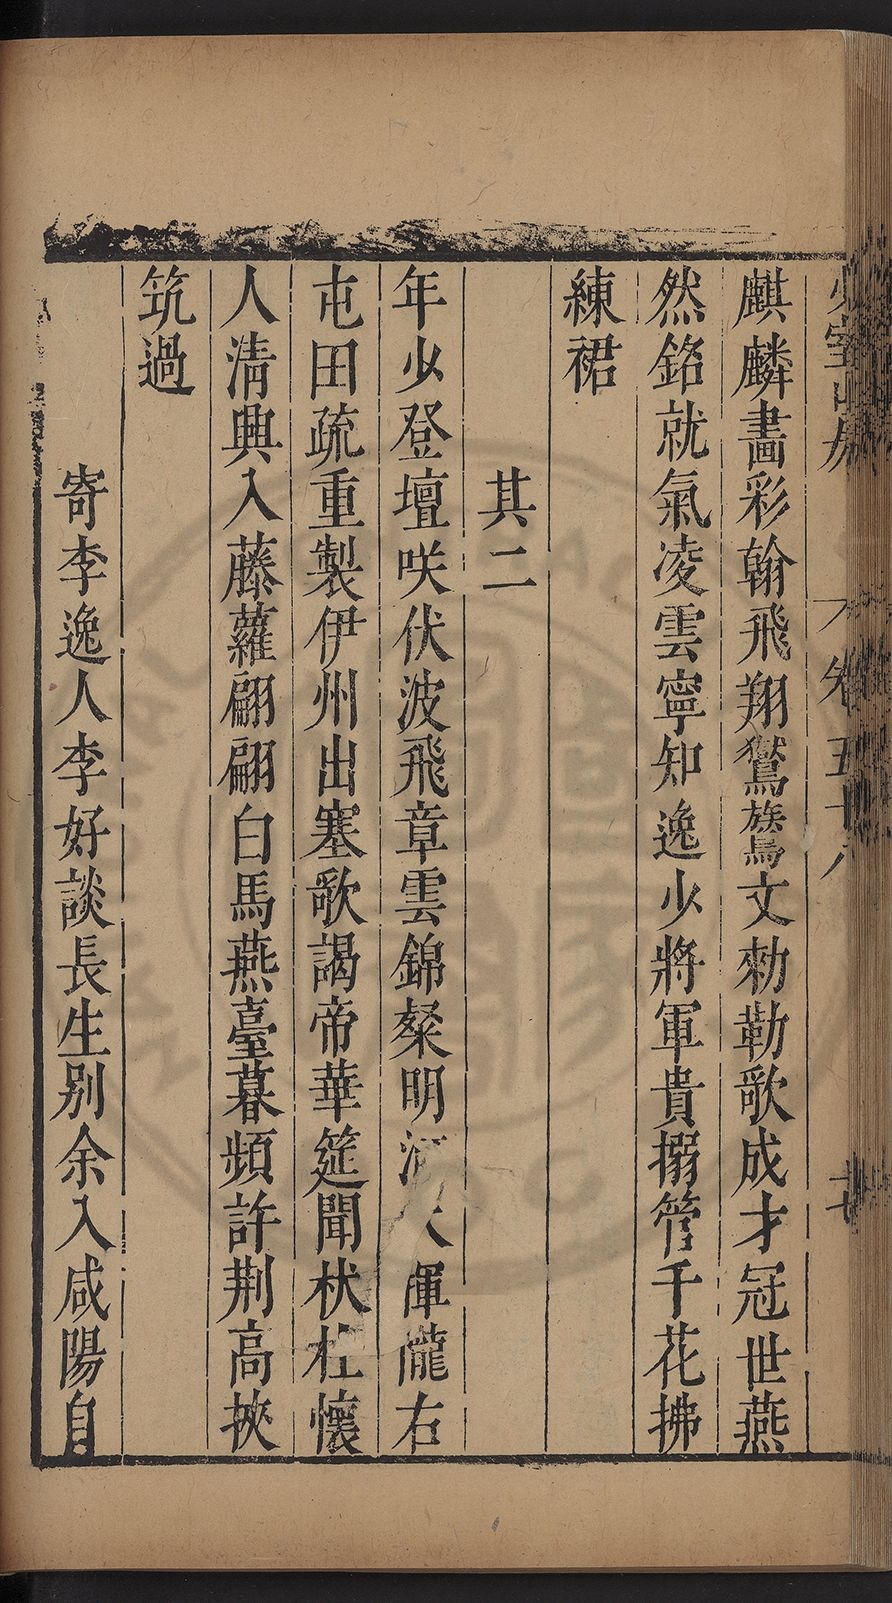 少室山房
卷五十八
麒麟畵彩翰飛翔鸑鷟文勑勒歌成才冠世燕
然銘就氣凌雲寧知逸少將軍貴搦管千花拂
練裙
其二
年少登壇咲伏波飛章雲錦粲明河大渾隴右
屯田疏重製伊州出塞歌謁帝華筵聞杕杜懷
人清興入藤蘿翩翩白馬燕臺暮頻許荆高挾
筑過
寄李逸人李好談長生别余入咸陽自